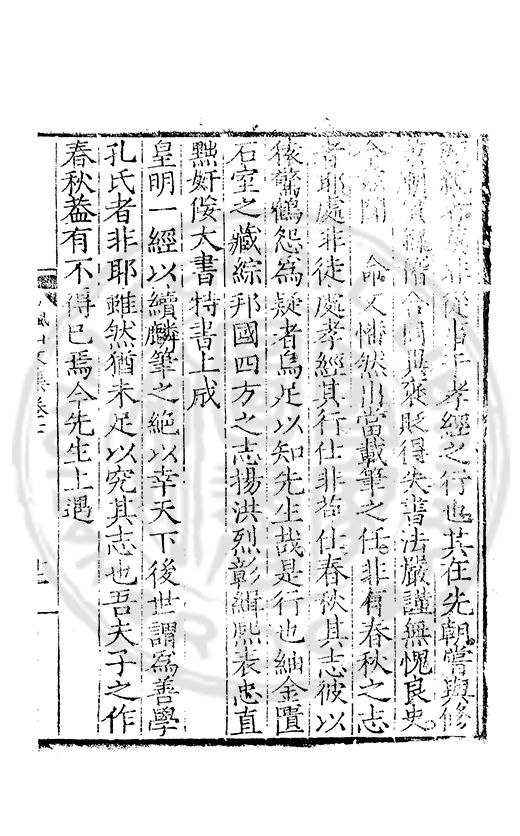 非從事于孝經之行也其在先朝嘗與修
實錄褒貶得失書法嚴謹無愧良史
今 聞 命又幡然出當載筆之任非有春秋之志
者耶處非徒處孝經其行仕非苟仕春秋其志彼以
猿驚鶴怨為疑者烏足以知先生哉是行也紬金匱
石室之藏綜邦國四方之志揚洪烈彰緝熙表忠直
黜奸佞大書特書上成
皇明一經以續麟筆之絕以幸天下後世謂為善學
孔氏者非耶雖然猶未足以究其志也吾夫子之作
春秋葢有不得已焉今先生上遇